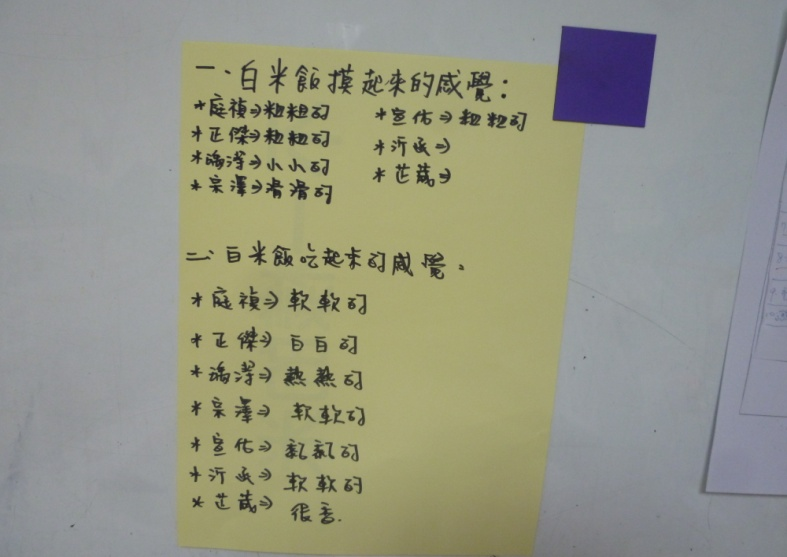 一、白米飯摸起來的感覺：
*庭禎⇒粗粗的
*正傑⇒粗粗的
*瑀澤⇒小小的
*宗澤⇒滑滑的
*宣佑⇒粗粗的
*沂丞⇒
*芷葳⇒
二、白米飯吃起來的感覺。
*庭禎⇒軟軟的
*正傑⇒白白的
*瑀澤⇒熱熱的
*宗澤⇒軟軟的
*宣佑⇒黏黏的
*沂丞⇒軟軟的
*芷葳⇒很香.